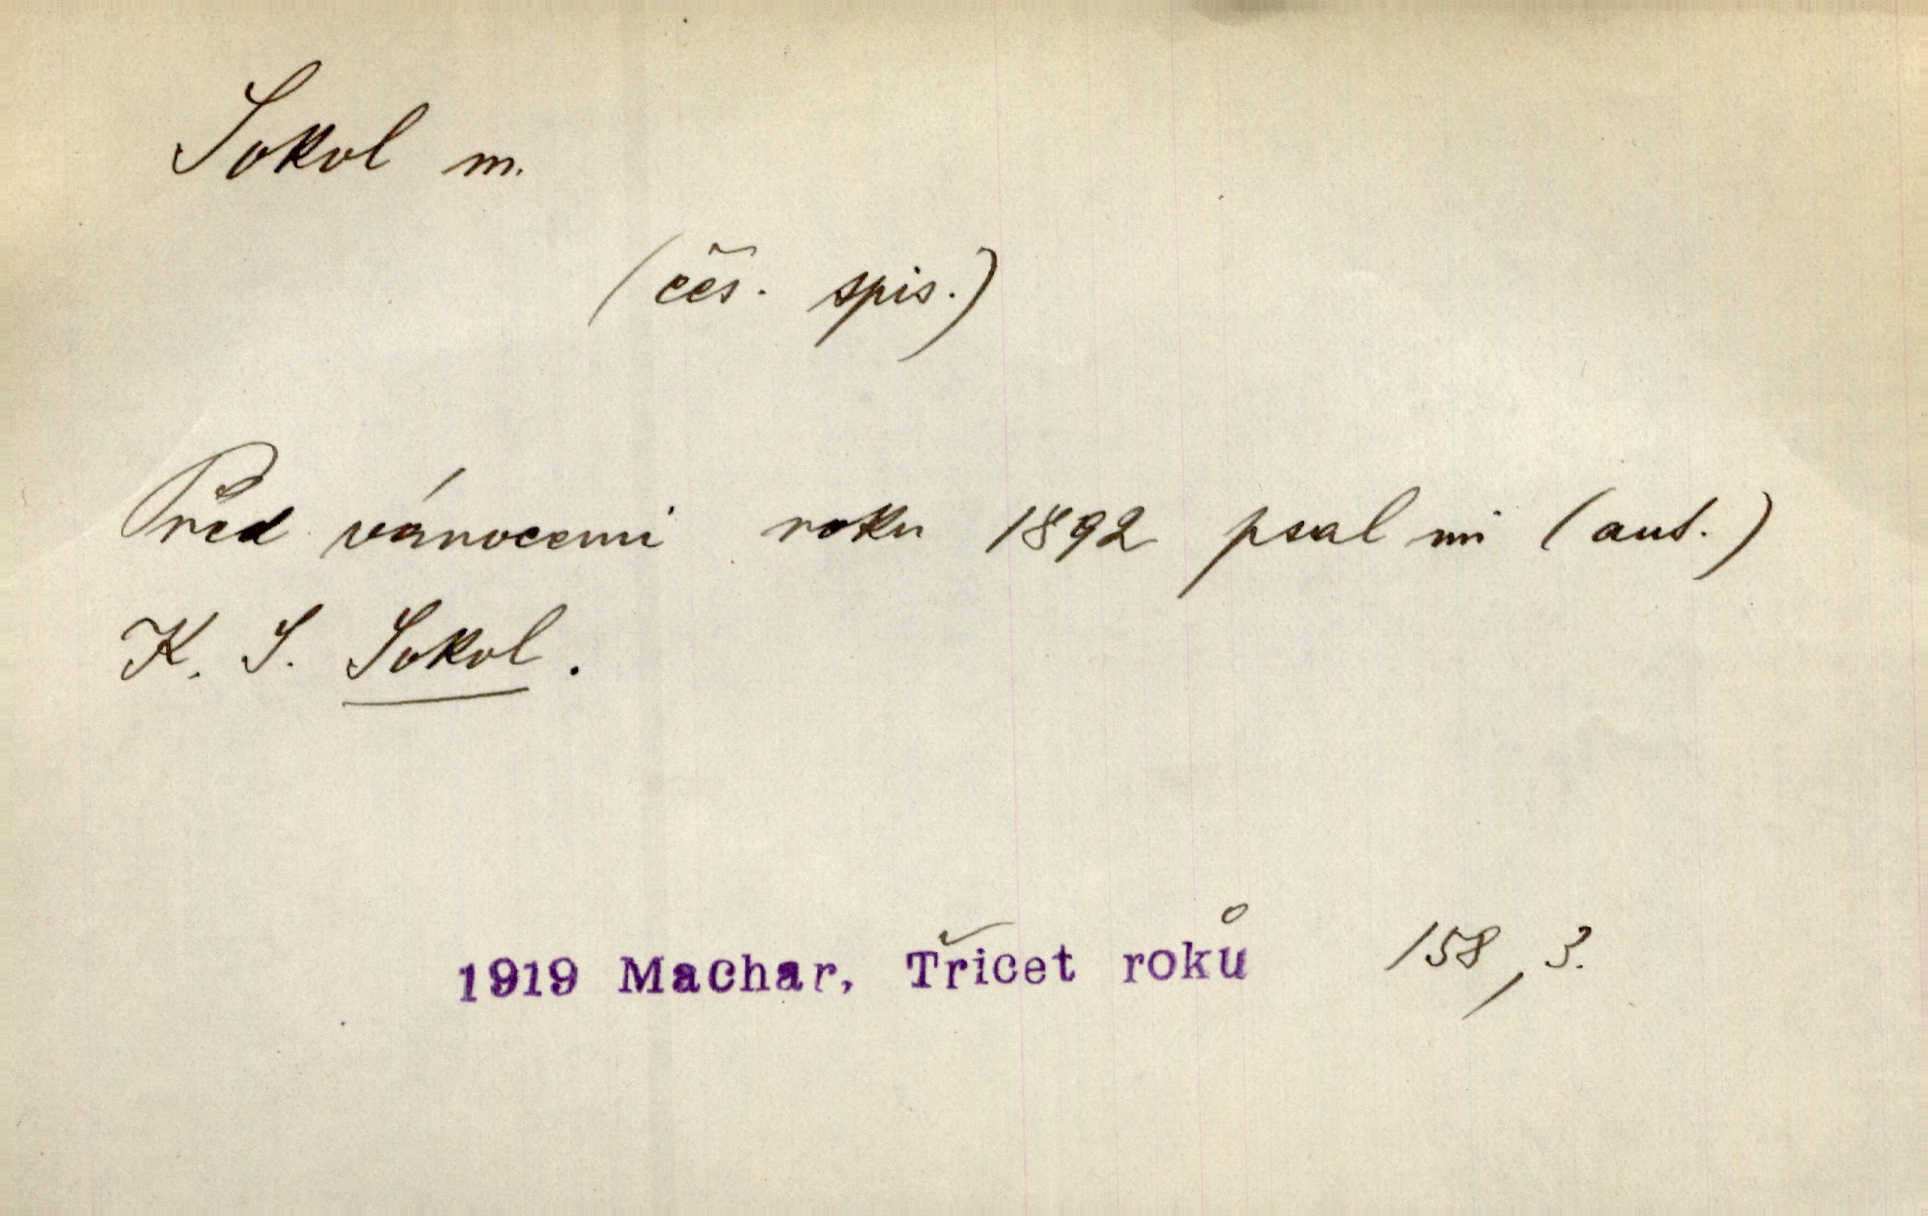 Sokol m.
(čes. spis.)
Před vánocemi roku 1892 psal mi (aut.)
K. S. Sokol.
1919 Machar, Třicet roků 158, 3.